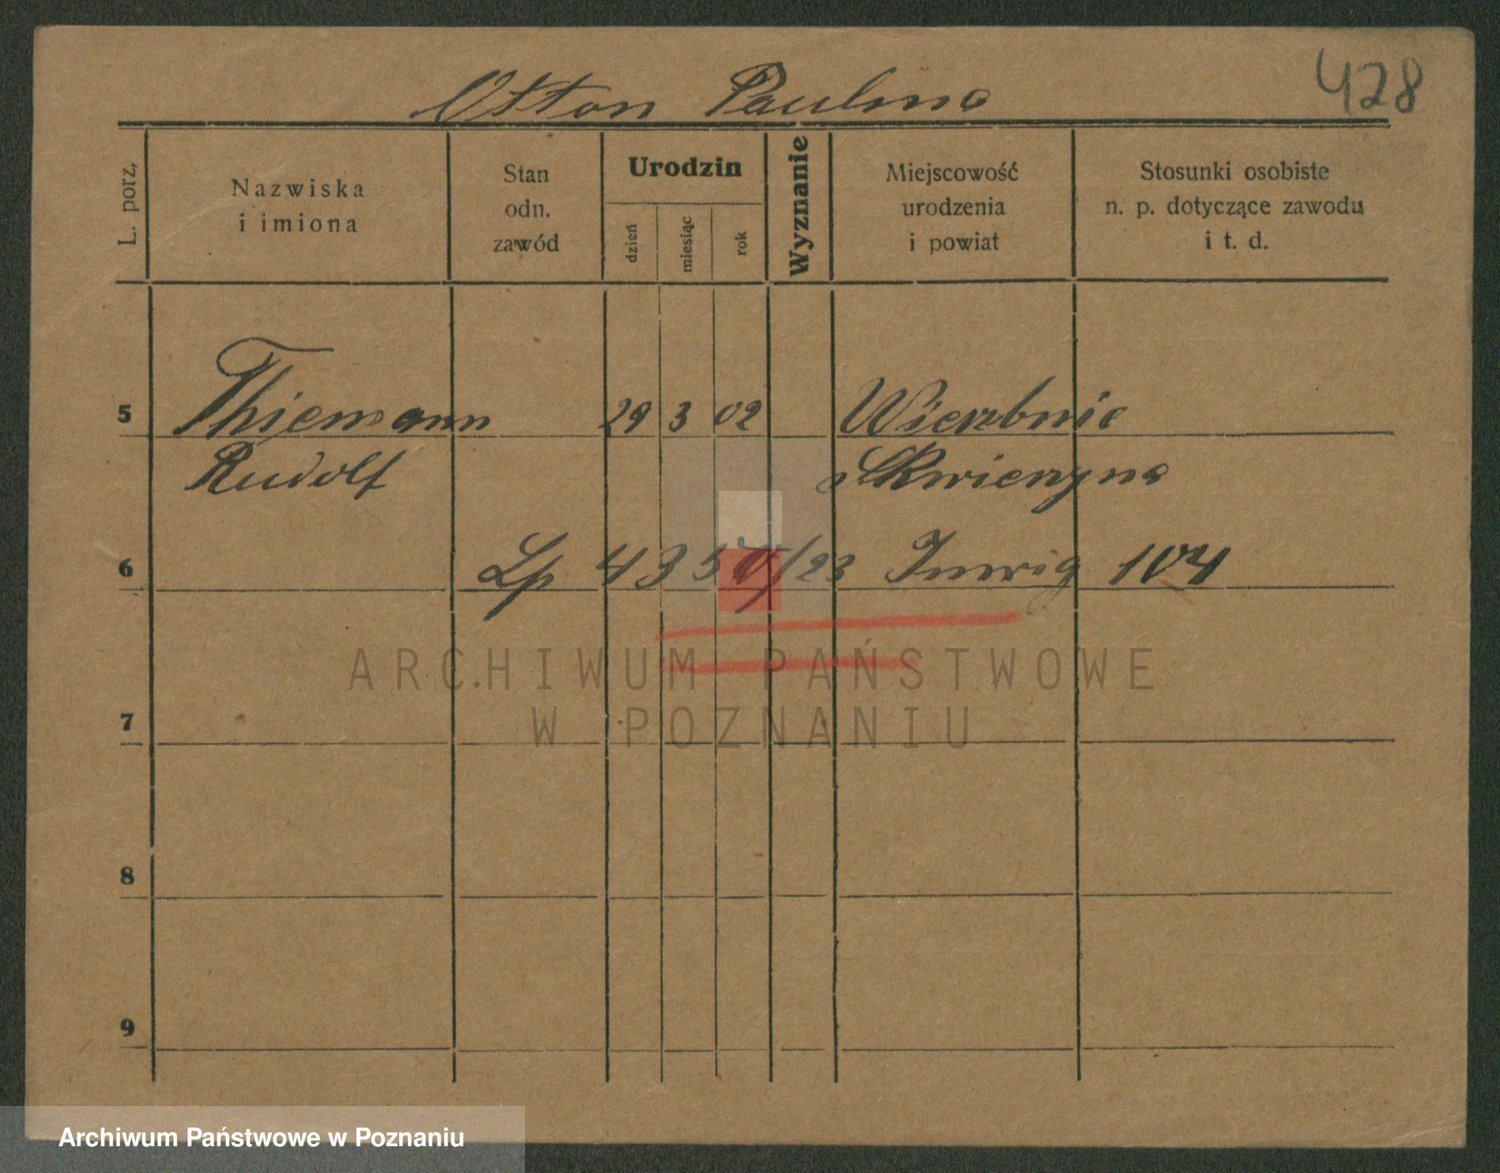 428
Otton Paulina
L. porz.
Nazwiska
i imiona
Stan
odn.
zawód
Urodzin
dzień
miesiąc
rok
Wyznanie
Miejscowość
urodzenia
i powiat
Stosunki osobiste
n. p. dotyczące zawodu
i t. d.
5 Thiemann 29 3 02 Wierzbnie
Rudolf Skwierzyna
6 Lp 4350/23 104
ARCHIWUM PAŃSTWOWE
W POZNANIU
7
8
9
Archiwum Państwowe w Poznaniu